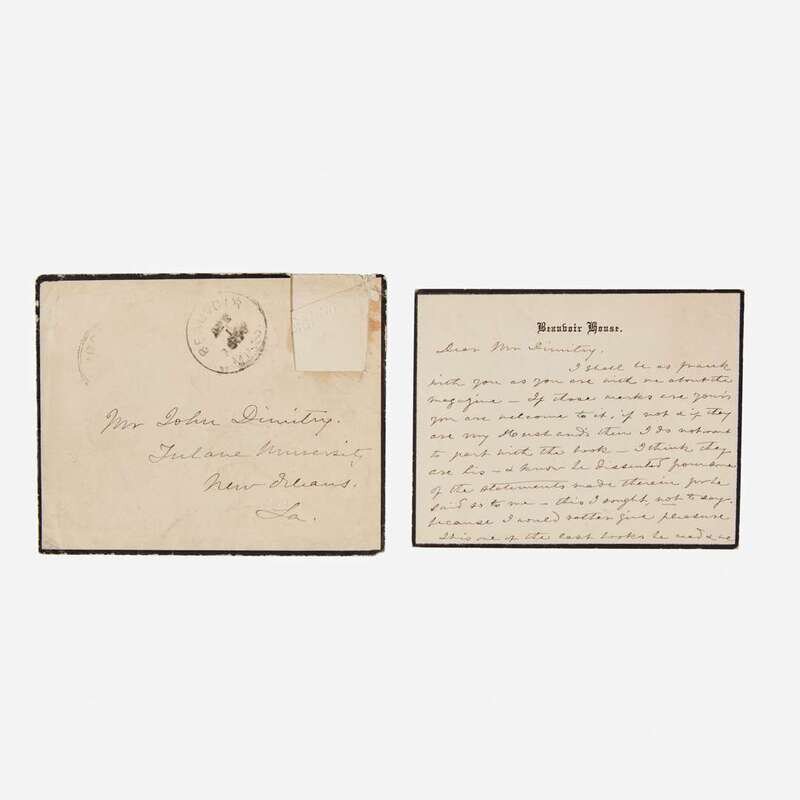 BEAUVOIR
MISS.
Mr John Dimitry.
Tulane University
New Orleans.
La.
Beauvoir House.
Dear Mr Dimitry.
I shall be as frank
with you as you are with me about the
magazine — If those marks are yours
you are welcome to it, if not & if they
are my Husbands then I do not want
to part with the book — I think they
are his — & know he dissented from some
of the statements made therein for he
said so to me — this I ought, not to say,
because I would rather give pleasure
This one of the last books he read &